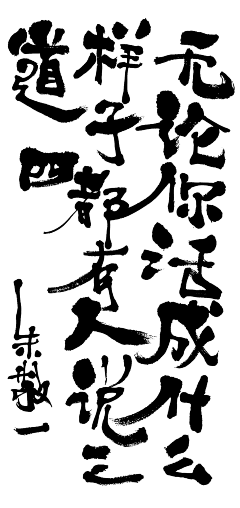 无论你活成什么
样子都有人说三
道四
朱敬一